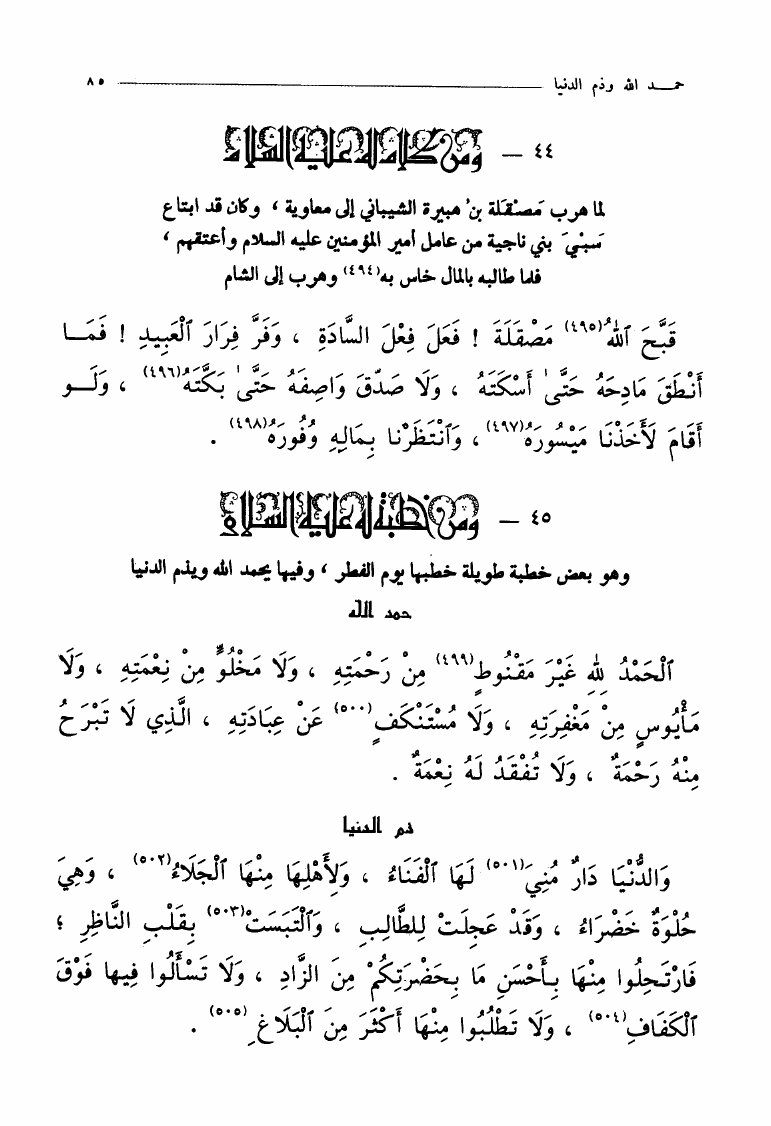 حمـــد الله وذم الدنيا ٨٥
٤٤ – ومن كلام له عليه السلام
لما هرب مَصْقَلة بن هبيرة الشيباني إلى معاوية ، وكان قد ابتاع
سَبْيَ بني ناجية من عامل أمير المؤمنين عليه السلام وأعتقهم ،
فلما طالبه بالمال خاس به(٤٩٤) وهرب إلى الشام
قَبَّحَ ٱللهُ(٤٩٥) مَصْقَلَةَ ! فَعَلَ فِعْلَ السَّادَةِ ، وَفَرَّ فِرَارَ ٱلْعَبِيدِ ! فَمَـــا
أَنْطَقَ مَادِحَهُ حَتَّىٰ أَسْكَتَهُ ، وَلَا صَدَّقَ وَاصِفَهُ حَتَّىٰ بَكَّتَهُ(٤٩٦) ، وَلَـــو
أَقَامَ لَأَخَذْنَا مَيْسُورَهُ(٤٩٧) ، وَٱنْتَظَرْنا بِمَالِهِ وُفُورَهُ(٤٩٨) .
٤٥ – ومن خطبة له عليه السلام
وهو بعض خطبة طويلة خطبها يوم الفطر ، وفيها يحمد الله ويذم الدنيا
حمد الله
ٱلْحَمْدُ لِلهِ غَيْرَ مَقْنُوطٍ(٤٩٩) مِنْ رَحْمَتِهِ ، وَلَا مَخْلُوٍّ مِنْ نِعْمَتِهِ ، وَلَا
مَأْيُوسٍ مِنْ مَغْفِرَتِهِ ، وَلَا مُسْتَنْكَفٍ(٥٠٠) عَنْ عِبَادَتِهِ ، الَّذِي لَا تَبْرَحُ
مِنْهُ رَحْمَةٌ ، وَلَا تُفْقَدُ لَهُ نِعْمَةٌ .
ذم الدنيا
وَالدُّنْيَا دَارٌ مُنِيَ(٥٠١) لَهَا ٱلْفَنَاءُ ، وَلِأَهْلِهَا مِنْهَا ٱلْجَلَاءُ(٥٠٢) ، وَهِيَ
حُلْوَةٌ خَضْرَاءُ ، وَقَدْ عَجِلَتْ لِلطَّالِبِ ، وَٱلْتَبَسَتْ(٥٠٣) بِقَلْبِ النَّاظِرِ ؛
فَارْتَحِلُوا مِنْهَا بِأَحْسَنِ مَا بِحَضْرَتِكُمْ مِنَ الزَّادِ ، وَلَا تَسْأَلُوا فِيها فَوْقَ
ٱلْكَفَافِ(٥٠٤) ، وَلَا تَطْلُبُوا مِنْهَا أَكْثَرَ مِنَ ٱلْبَلَاغِ(٥٠٥) .